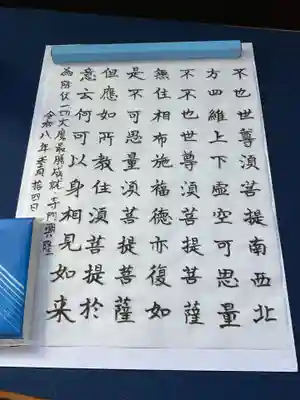 不也世尊須菩提南西北
方四維上下虛空可思量
不不也世尊須菩提菩薩
無住相布施福德亦復如
是不可思量須菩提菩薩
但應如所教住須菩提於
意云何可以身相見如来
為降伏一切大魔最勝成就寺門興隆
令和八年壱月拾四日